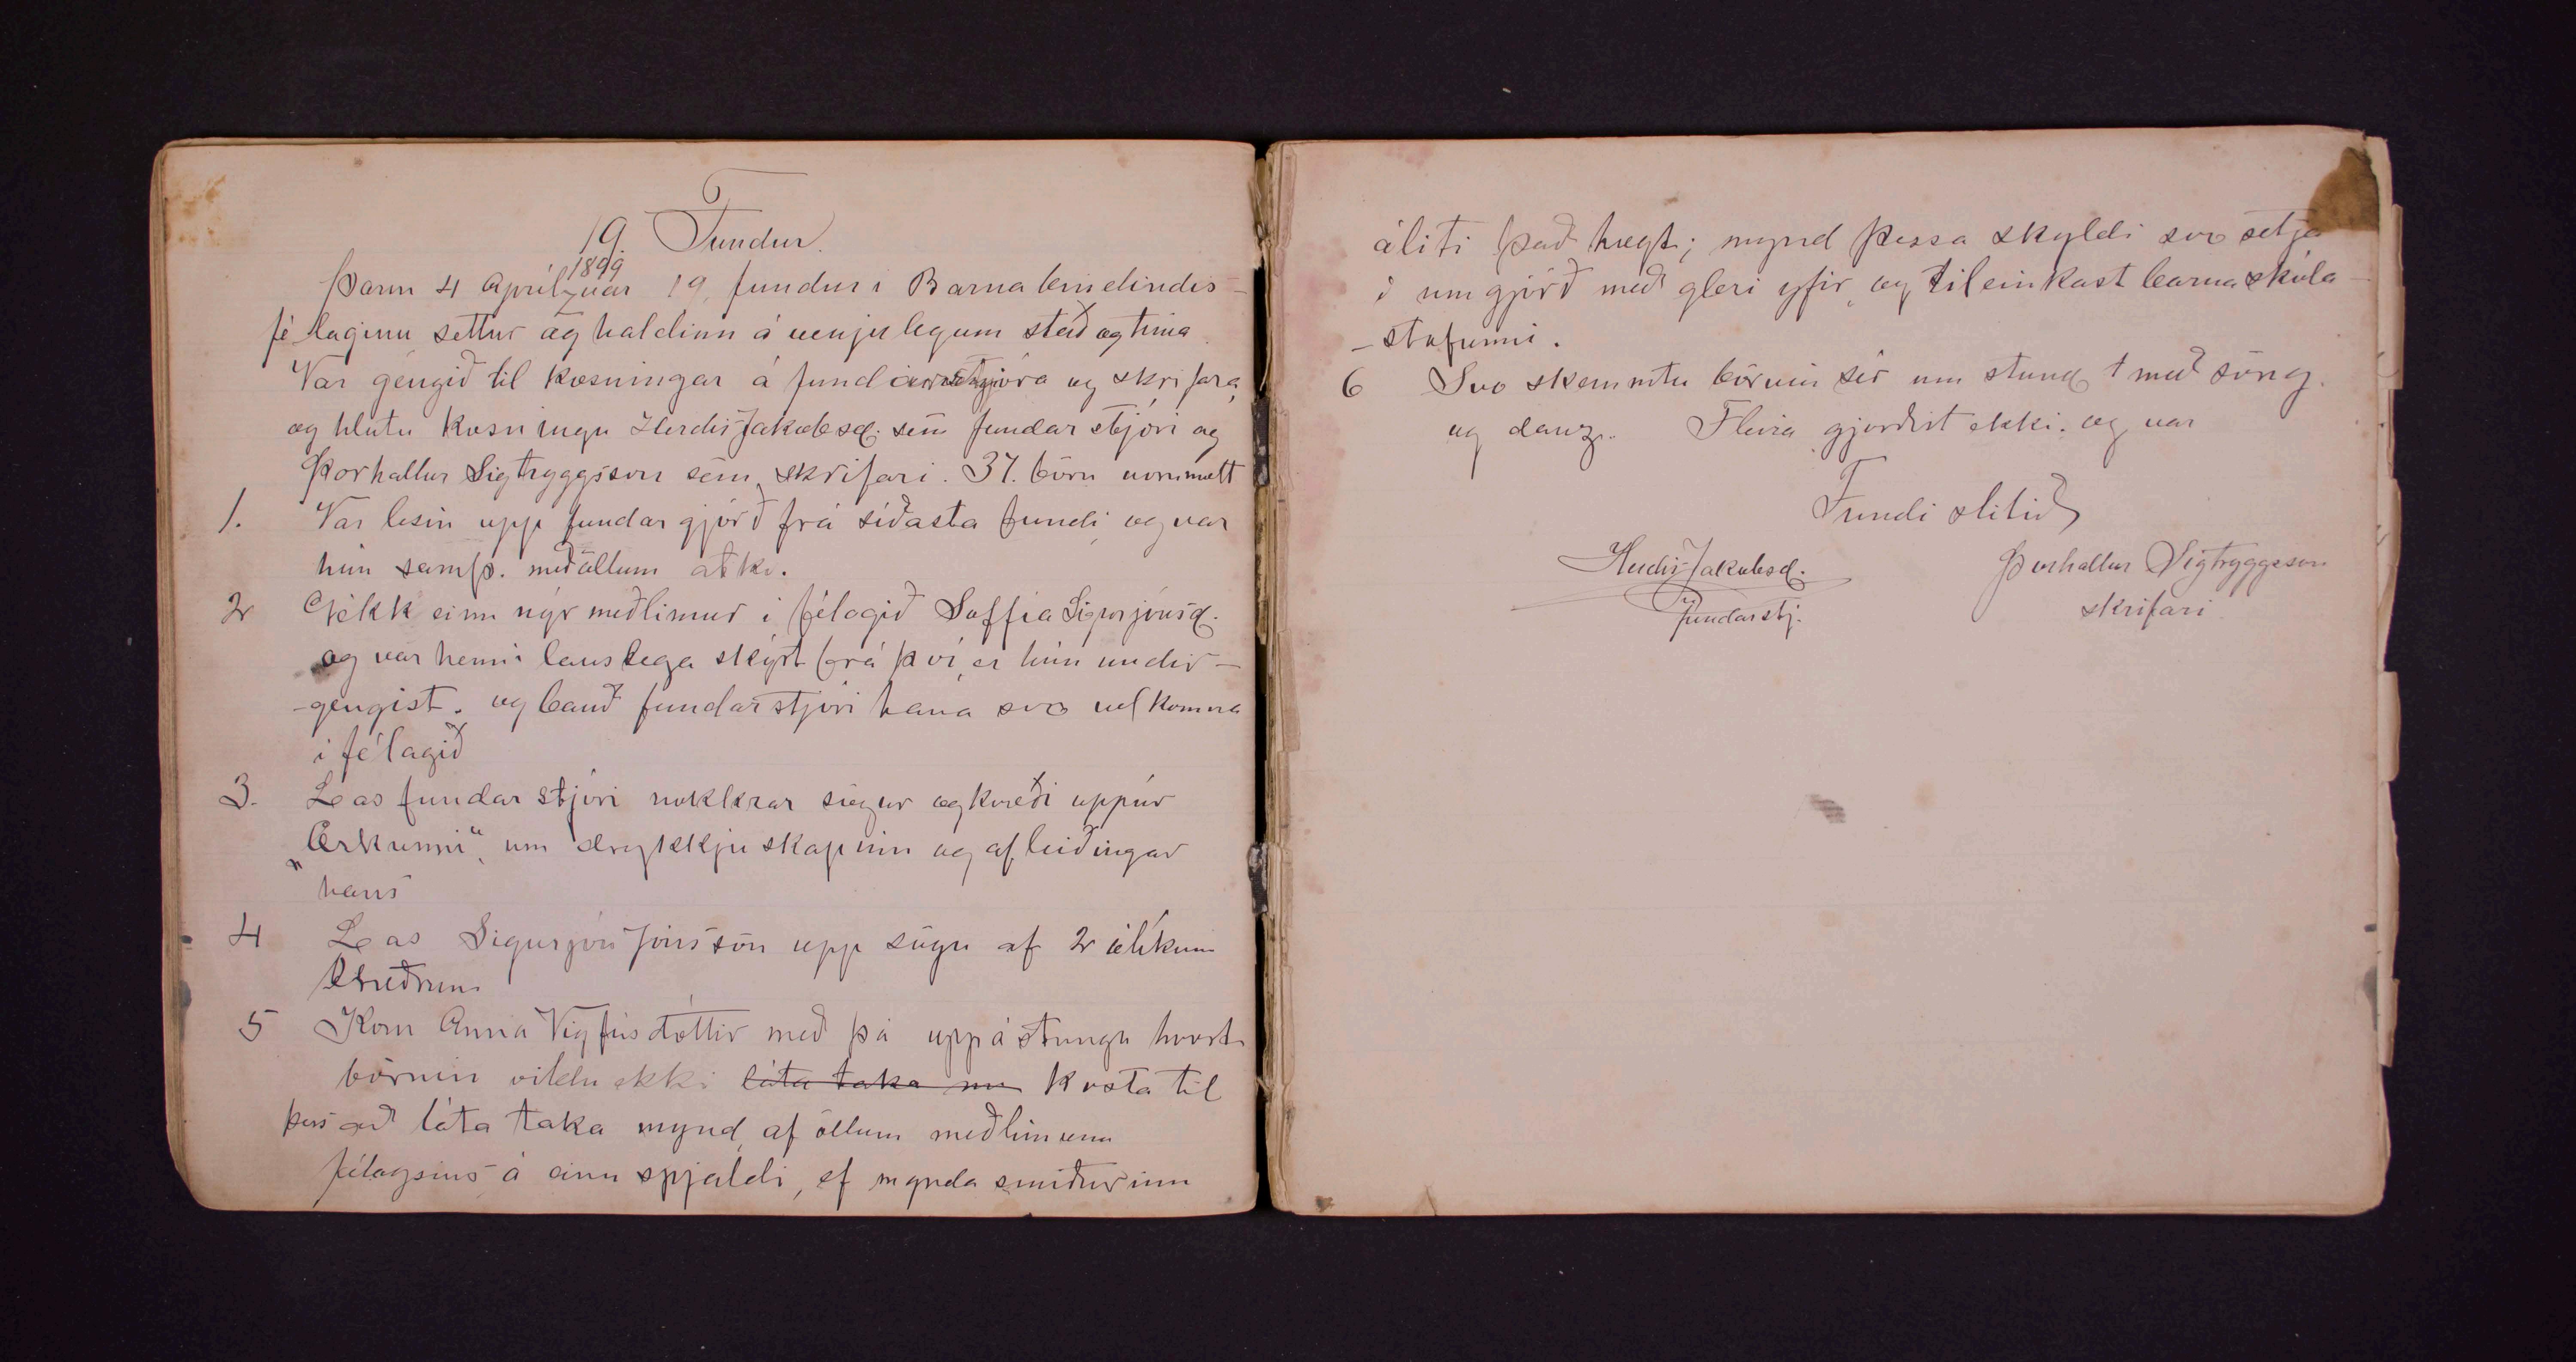 19. Fundur.
Þann 4 Apríl 1899 var 19. fundur í Barnabindindis-
félaginu settur og haldinn á venjulegum stað og tíma.
Var gengið til kosningar á fundarstjóra og skrifara,
og hlutu kosningu Herdís Jakobsd. sem fundarstjóri og
Þorhallur Sigtryggsson sem skrifari. 37. börn voru mætt
1. Var lesin upp fundargjörð frá síðasta fundi, og var
hún samþ. með öllum atkv.
2 Gékk einn nýr meðlimur í félagið Soffía Sigurjónsd.
og var henni lauslega skýrt frá því, er hún undir-
-gengist. og bauð fundarstjóri hana svo velkomna
í félagið
3. Las fundarstjóri nokkrar sögur og kvæði uppúr
„Örkunni“, um drykkjuskapinn og afleiðingar
hans
4 Las Sigurjón Jónsson upp sögu af 2 ólíkum
bræðrum.
5 Kom Anna Vigfúsdóttir með þá uppástungu hvort
börnin vildu ekki láta taka my kosta til
þess að láta taka mynd, af öllum meðlimum
félagsins á einu spjaldi, ef myndasmiðurinn
áliti það hægt; mynd þessa skyldi svo setja
í umgjörð með gleri yfir, og tileinkast barnaskóla-
-stofunni.
6 Svo skemmtu börnin sér um stund með söng
og danz. Fleira gjörðist ekki. og var
Fundi slitið
Herdís Jakobsd. Þorhallur Sigtryggsson
fundarstj. skrifari